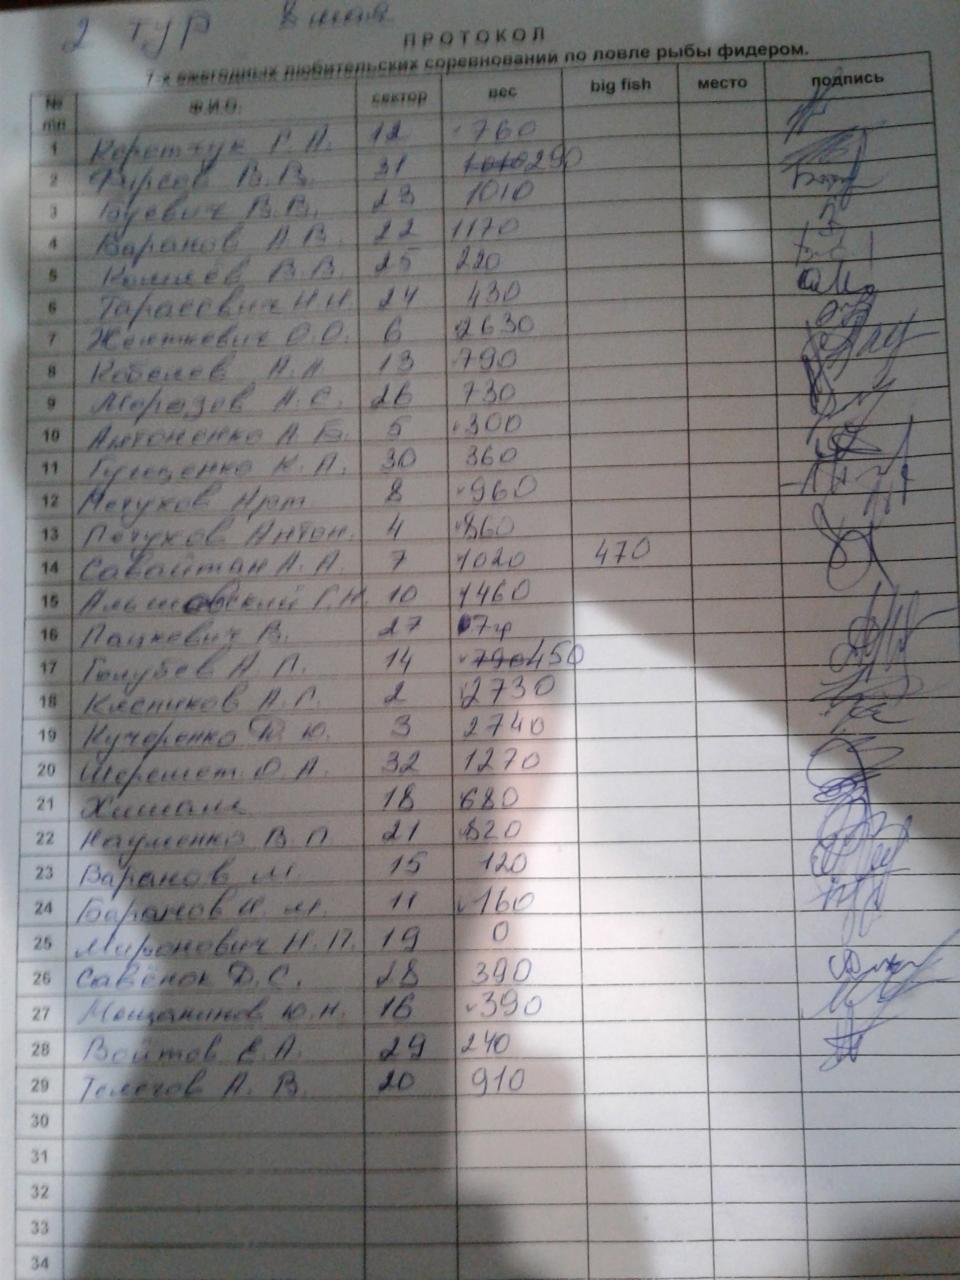 2 тур 8 мая
ПРОТОКОЛ
7-х ежегодных любительских соревнований по ловле рыбы фидером.
№ пп Ф.И.О. сектор вес big fish место подпись
1 Коротчук Г. А. 12 760
2 Фирсов В. В. 31 1010 290
3 Буевич В. В. 23 1010
4 Варанов А. В. 22 1170
5 В. В. 25 220
6 Тарасевич Н. Н. 24 430
7 О. О. 6 2630
8 Кобелев А. А. 13 790
9 Морозов А. С. 26 730
10 Антоненко А. Б. 5 300
11 К. А. 30 360
12 Петухов Арт. 8 960
13 Петухов Антон. 4 860
14 А. А. 7 1020 470
15 Г. Н. 10 1460
16 Пацкевич В. 27 07гр
17 Голубев А. П. 14 790 450
18 А. Г. 2 2730
19 Кучеренко Ю. 3 2740
20 Шеремет О. А. 32 1270
21 18 680
22 Науменко В. П. 21 820
23 Варанов М. 15 120
24 Баранов И. М. 11 160
25 Миронович Н. П. 19 0
26 Савёнок Д. С. 28 390
27 Мощанинов Ю. Н. 16 390
28 Войтов Е. А. 29 240
29 Телегов А. В. 20 910
30
31
32
33
34